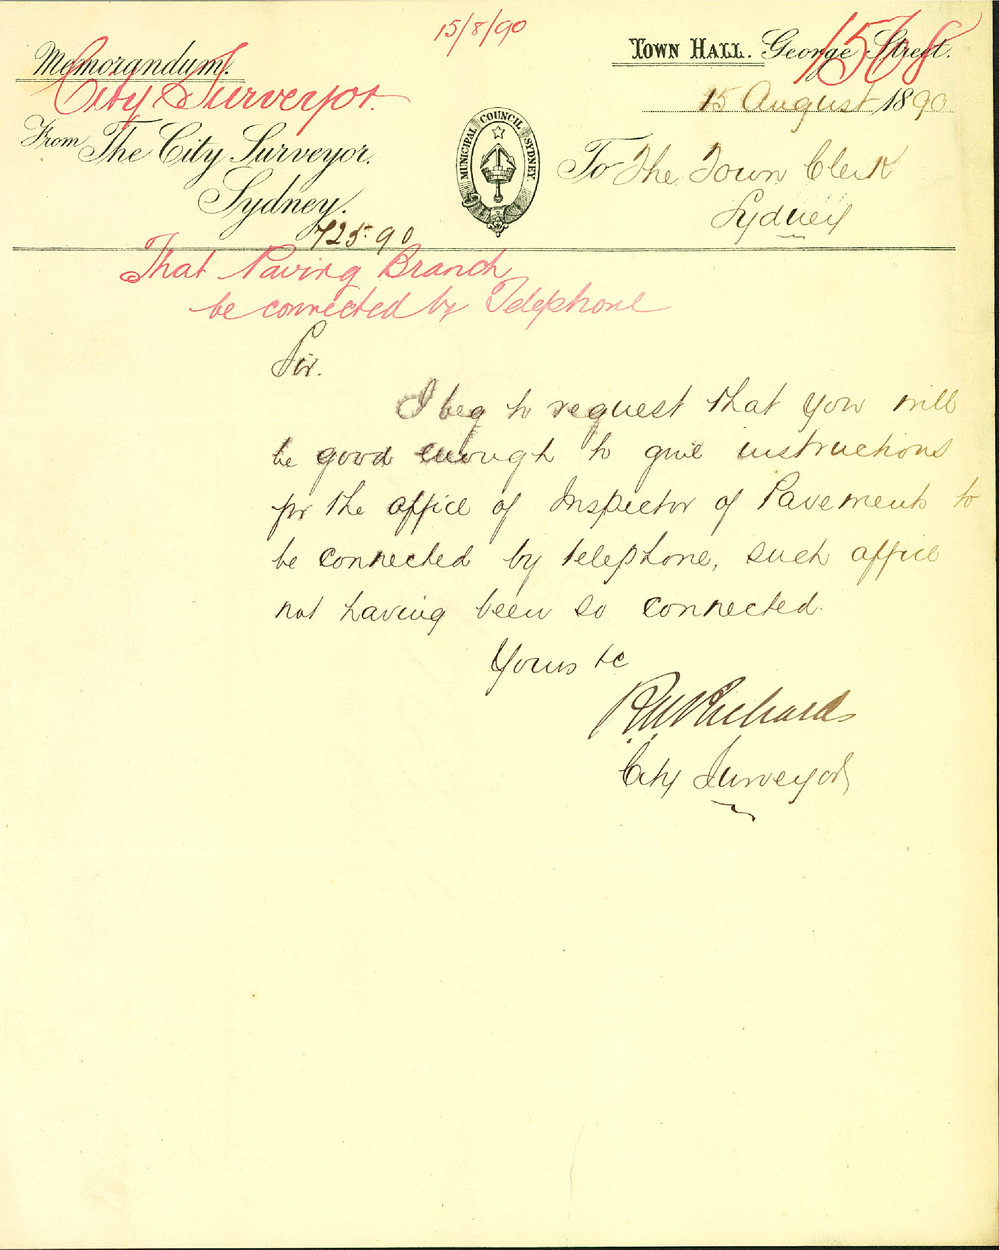 15/8/90
Memorandum.
City Surveyor.
Town Hall. George Street.
1568
15 August 1890.
From The City Surveyor,
Sydney.
MUNICIPAL COUNCIL SYDNEY
To The Town Clerk
Sydney
725.90
That Paving Branch
be connected by Telephone
Sir.
I beg to request that you will
be good enough to give instructions
for the office of Inspector of Pavements to
be connected by telephone, such office
not having been so connected.
Yours &c
R W Richards
City Surveyor